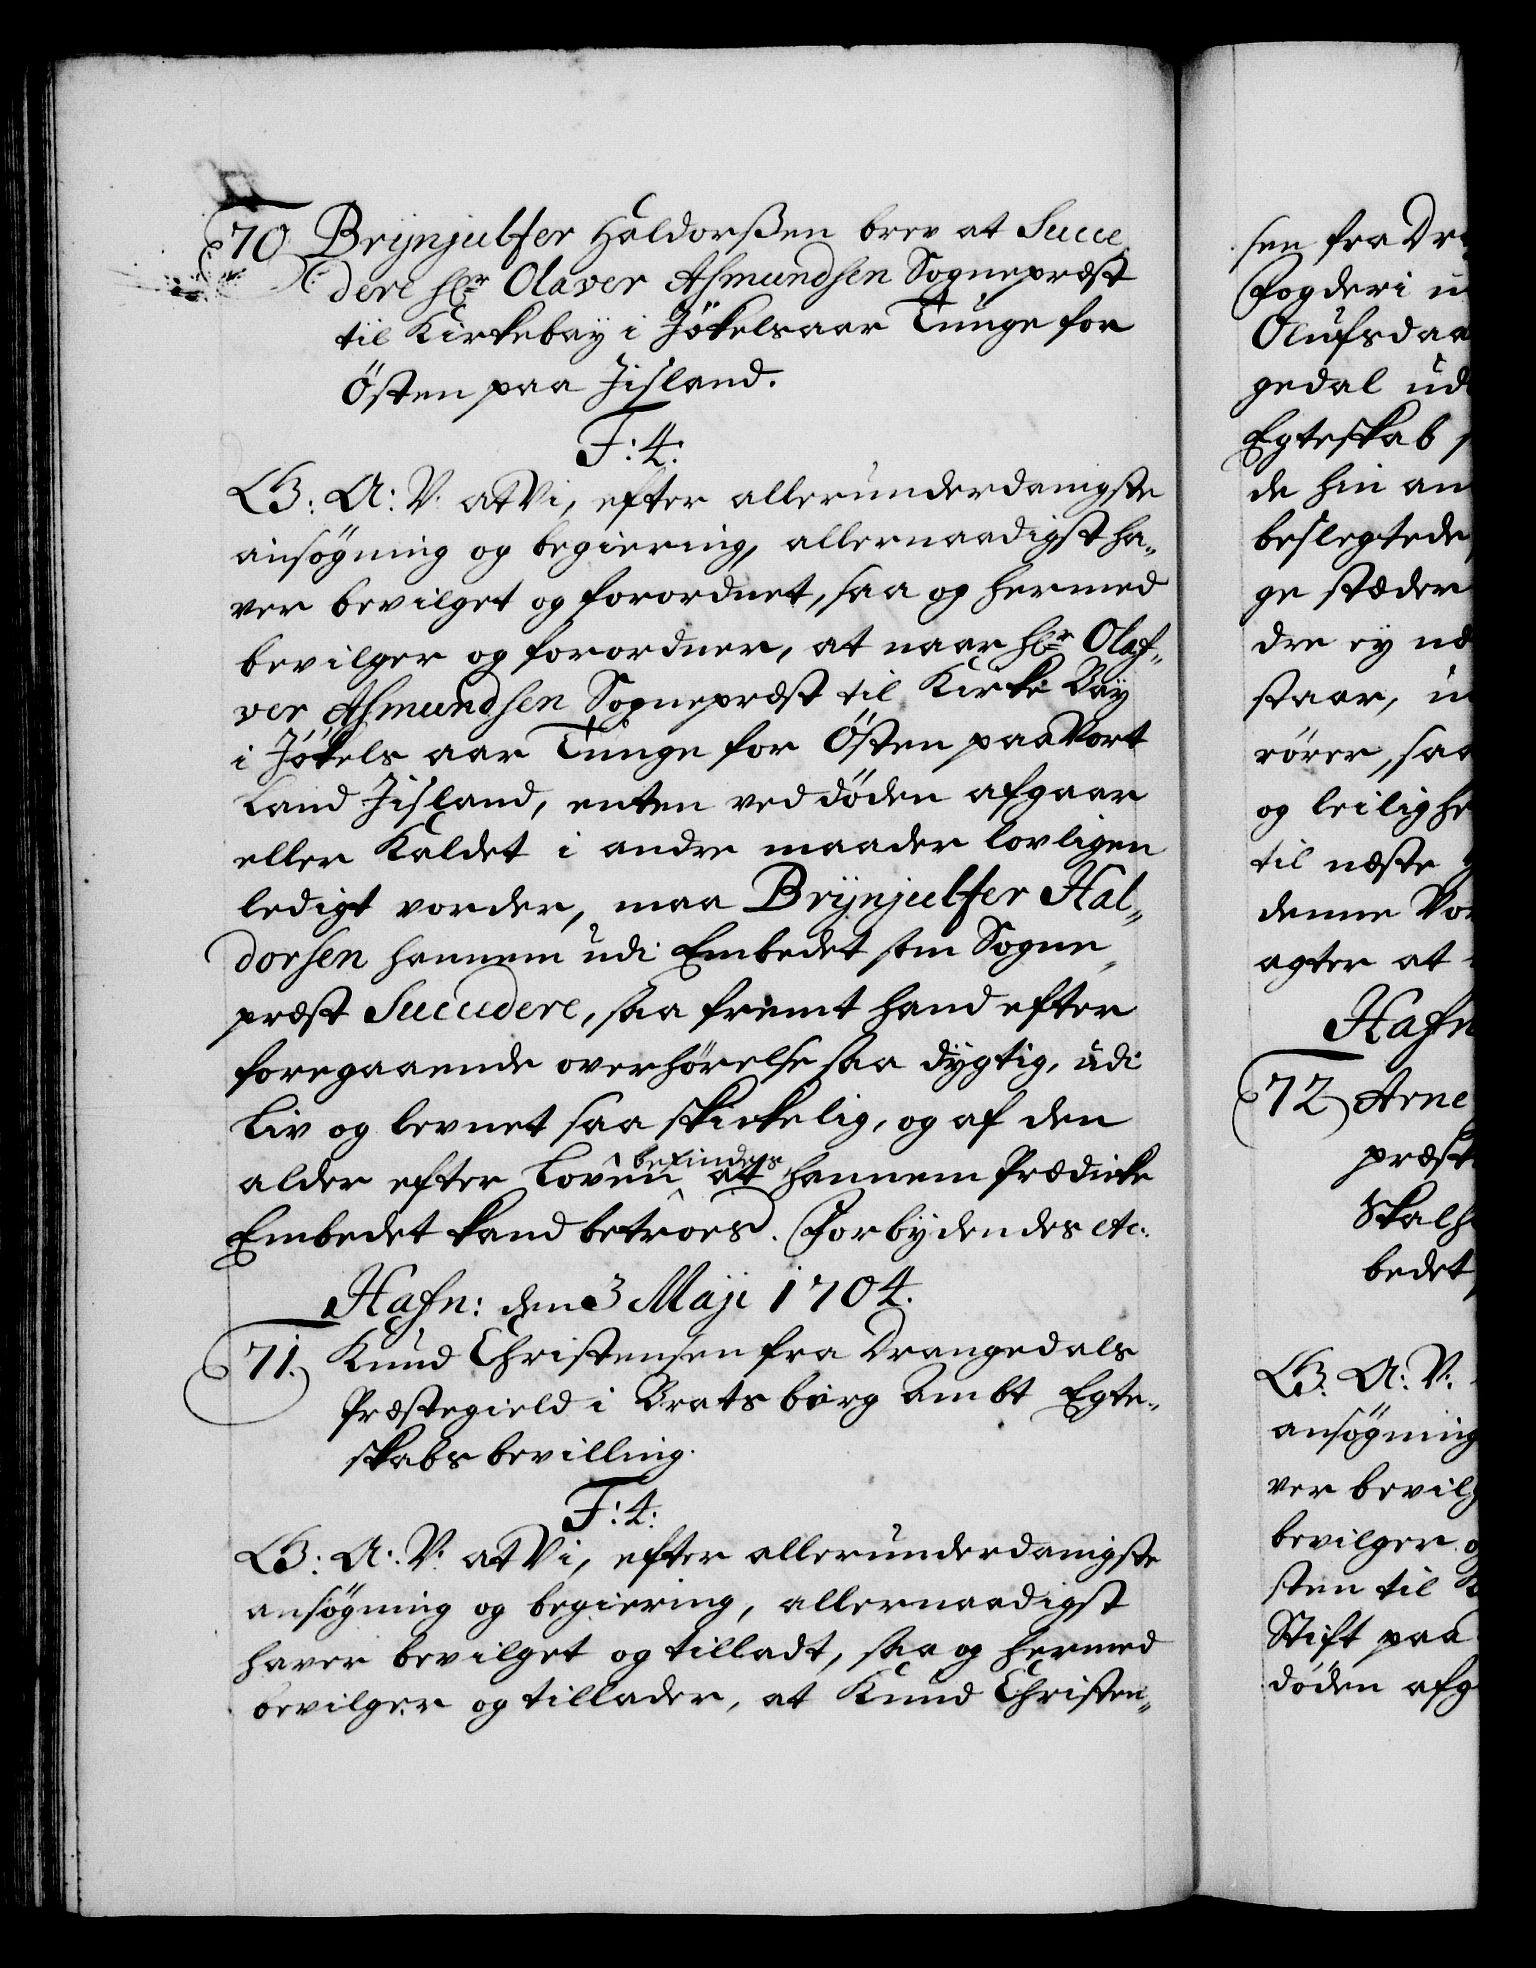 70. Brÿnjulfer Haldorßen brev at Succe¬
dere Hr Olaver Asmundsen Sognepræst
til Kirkebay i Jökelsaar Tunge for
Östen paa Jisland.
F: 4:
G: A: V: at Vi, efter allerunderdanigste
ansögning og begiering, allernaadigst ha„
ver bevilget og forordnet, saa og hermed
bevilger og forordner, at naar Hr Olaf„
ver Asmundsen Sognepræst til Kirke Bay
i Jökels aar Tunge for Östen paa Vort
Land Jisland, enten ved döden afgaar
eller Kaldet i andre maader lovligen
ledigt vorder, maa Brÿnjulfer Hal„
dorsen hannem udi Embedet som Sogne„
præst Succedere, saa fremt hand efter
foregaaende overhörelse saa dygtig, udi
Liv og levnet saa skickelig, og af den
alder efter Loven befindes at hannem Prædicke
Embedet kand betroes. Forbydendes etc:
Hafn: den 3 Maji 1704.
71. Knud Christensen fra Drangedals
Præstegield i Bratsberg Ambt Egte„
skabs bevilling.
F: 4:
G: A: V: at Vi, efter allerunderdanigste
ansögning og begiering, allernaadigst
haver bevilget og tilladt, saa og hermed
bevilger og tillader, at Knud Christen„
sen fra Dr
Fogderi u
Olufsdaa
gedal ud
Egteskab
de hin an
beslegtede
ge stæder
dre ey næ
staar, u
rörer, saa
og leilighe
til næste
denne Vor
agter at
Hafn
72 Arne
præst
Skalh
bedet
G: A: V:
ansögning
ver bevilg
bevilger o
sten til K
Stift paa
döden afg